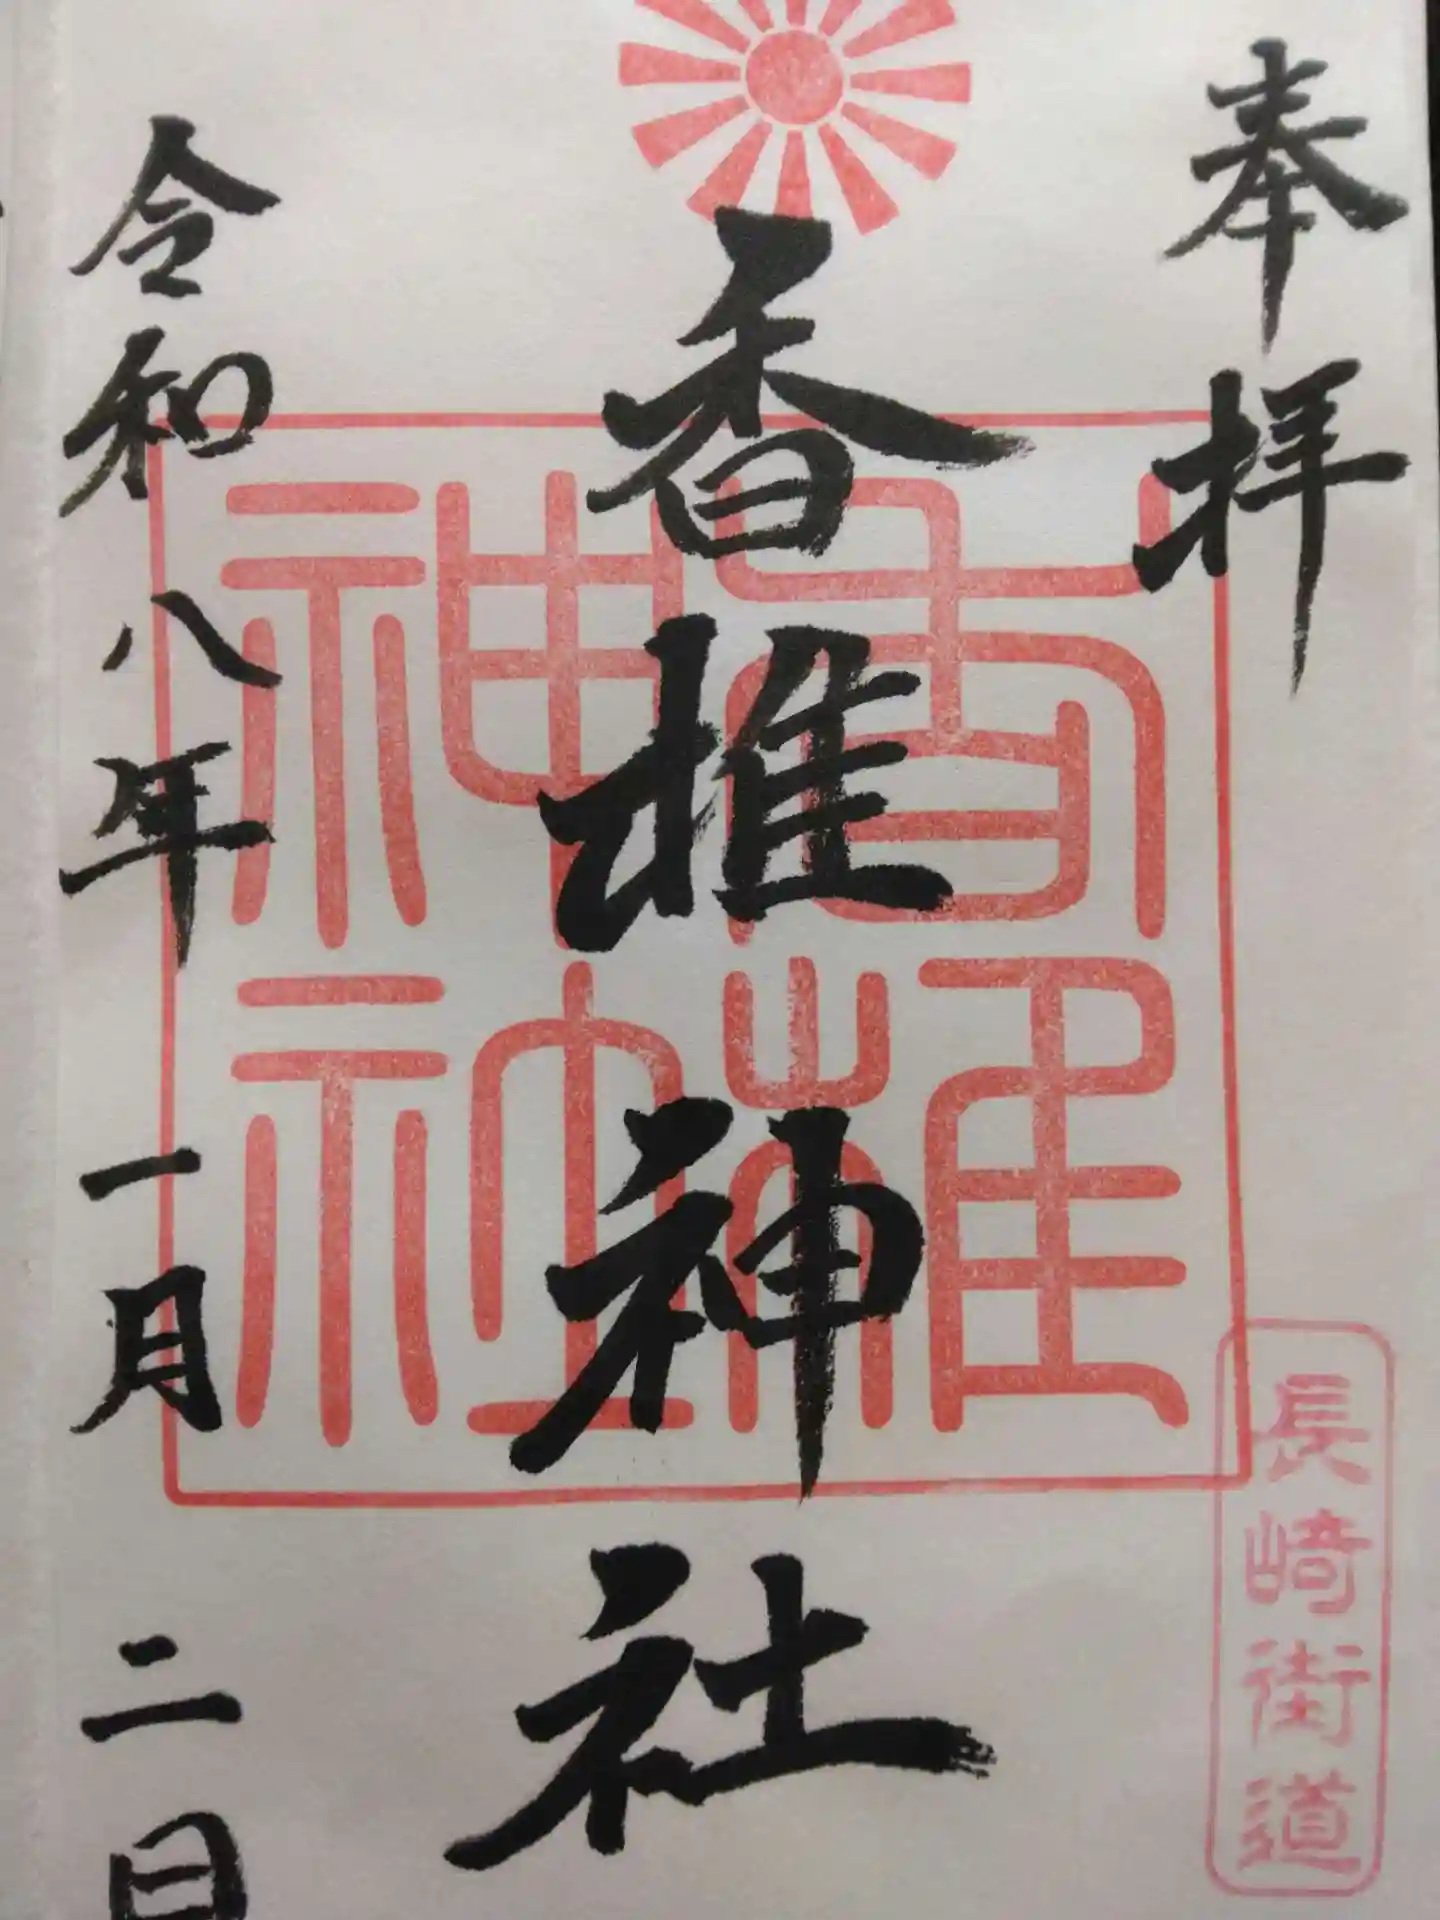 奉拝
香椎神社
香椎神社
長崎街道
令和八年一月二日